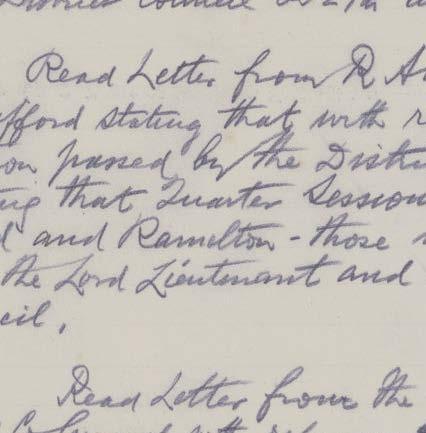 District Council
Read Letter from R
fford stating that with
on passed by the Distri
ng that Quarter Session
d and Ramelton - those
the Lord Lieutenant and
cil.
Read Letter from the